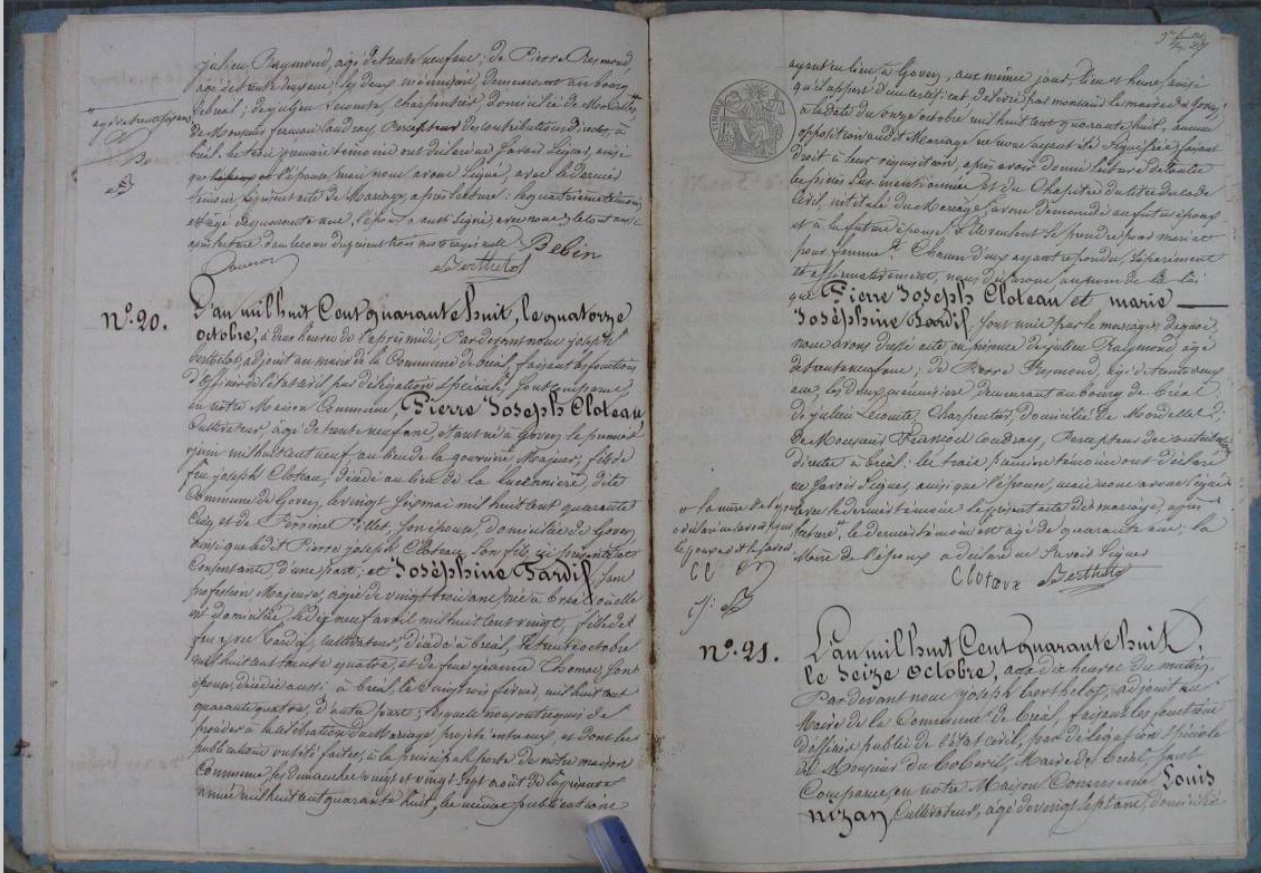 julien Raymond, agé de trente neuf ans; de Pierre Raymond,
agé de trente deux ans; les deux menuisiers, demeurant au bourg
de bréal; de julien Lecomte, charpentier, domicilié de Mordelles,
de Monsieur francois Coudray, Percepteur des Contributions directes, à
bréal. les trois premiers témoins ont déclaré ne savoir signer, ainsi
que l'épouse, mais nous avons signé, avec le dernier
témoin le présent acte de Mariage, après lecture: le quatrième témoin
est agé de quarante ans, l'époux a aussi signé, avec nous, le tout aussi
après lecture
Bébin
Berthelot
N.° 20.
L'an mil huit Cent quarante huit, le quatorze
octobre, à deux heures de l'après midi, Par devant nous joseph
berthelot, adjoint au maire de la Commune de bréal, faisant les fonctions
d'officier de l'état civil par délégation spéciale, sont comparus
en notre Maison Commune, Pierre Joseph Cloteau
Cultivateur, âgé de trente neuf ans, étant né à Goven le premier
juin mil huit cent neuf au lieu de la Majeur, fils de
feu joseph Cloteau, décédé au lieu de la dite
Commune de Goven, le vingt six mai mil huit cent quarante
Cinq, et de Perrine Pillet, son épouse, domiciliée de Goven,
ainsi que le dit Pierre joseph Cloteau, son fils, ici présente et
Consentante d'une part; et Joséphine Tardif, sans
profession, Majeure, agée de vingt trois ans, née à bréal où elle
est domiciliée, le dix neuf avril mil huit cent vingt, fille de
feu yves Tardif, cultivateur, décédé à bréal, le trente octobre
mil huit cent trente quatre, et de feue jeanne Thomas, son
épouse, décédée aussi à bréal, le vingt trois février, mil huit cent
quarante quatre, d'autre part; lesquels nous ont requis de
procéder à la célébration du Mariage, projeté entre eux, et dont les
publications ont été faites, à la principale porte de notre maison
Commune, les dimanches vingt et vingt sept août de la présente
année mil huit cent quarante huit, les mêmes publications
ayant eu lieu à Goven, aux mêmes jours, lieu et heure, ainsi
qu'il appert d'un certificat délivré par monsieur le maire de Goven,
à la date du onze octobre mil huit cent quarante huit, aucune
opposition audit Mariage ne nous ayant été Signifiée, faisant
Droit à leur réquisition, après avoir donné lecture de toutes
les pièces sus mentionnées, et du Chapitre du titre du Code
Civil, intitulé du Mariage, avons demandé au futur époux
et à la future épouse, s'ils veulent se prendre pour mari et
pour femme? Chacun d'eux ayant répondu, séparément
et affirmativement, nous déclarons au nom de la loi
que Pierre Joseph Cloteau et marie
Joséphine Tardif, sont unis par le mariage; de quoi,
nous avons dressé acte en présence de julien Raymond, agé
de trente neuf ans; de Pierre Raymond, agé de trente deux
ans, les deux menuisiers, demeurant au bourg de bréal;
de julien Lecomte, Charpentier, domicilié de Mordelles;
de Monsieur François Coudray, Percepteur des contributions
directes à bréal: les trois premiers témoins ont déclaré
ne savoir signer, ainsi que l'épouse, mais nous avons signé
avec le dernier témoin le présent acte de mariage, après
lecture, le dernier témoin est agé de quarante ans, la
Mère de l'époux a déclaré ne savoir signer
Cloteau Berthelot
N.° 21.
L'an mil huit Cent quarante huit,
le Seize Octobre, aux dix heures du matin,
Par devant nous joseph berthelot, adjoint au
Maire de la Commune de bréal, faisant les fonctions
d'officier public de l'état civil, par délégation spéciale
de Monsieur Maire de bréal, sont
Comparus, en notre Maison Commune Louis
Nizan, Cultivateur, agé de vingt sept ans, domicilié